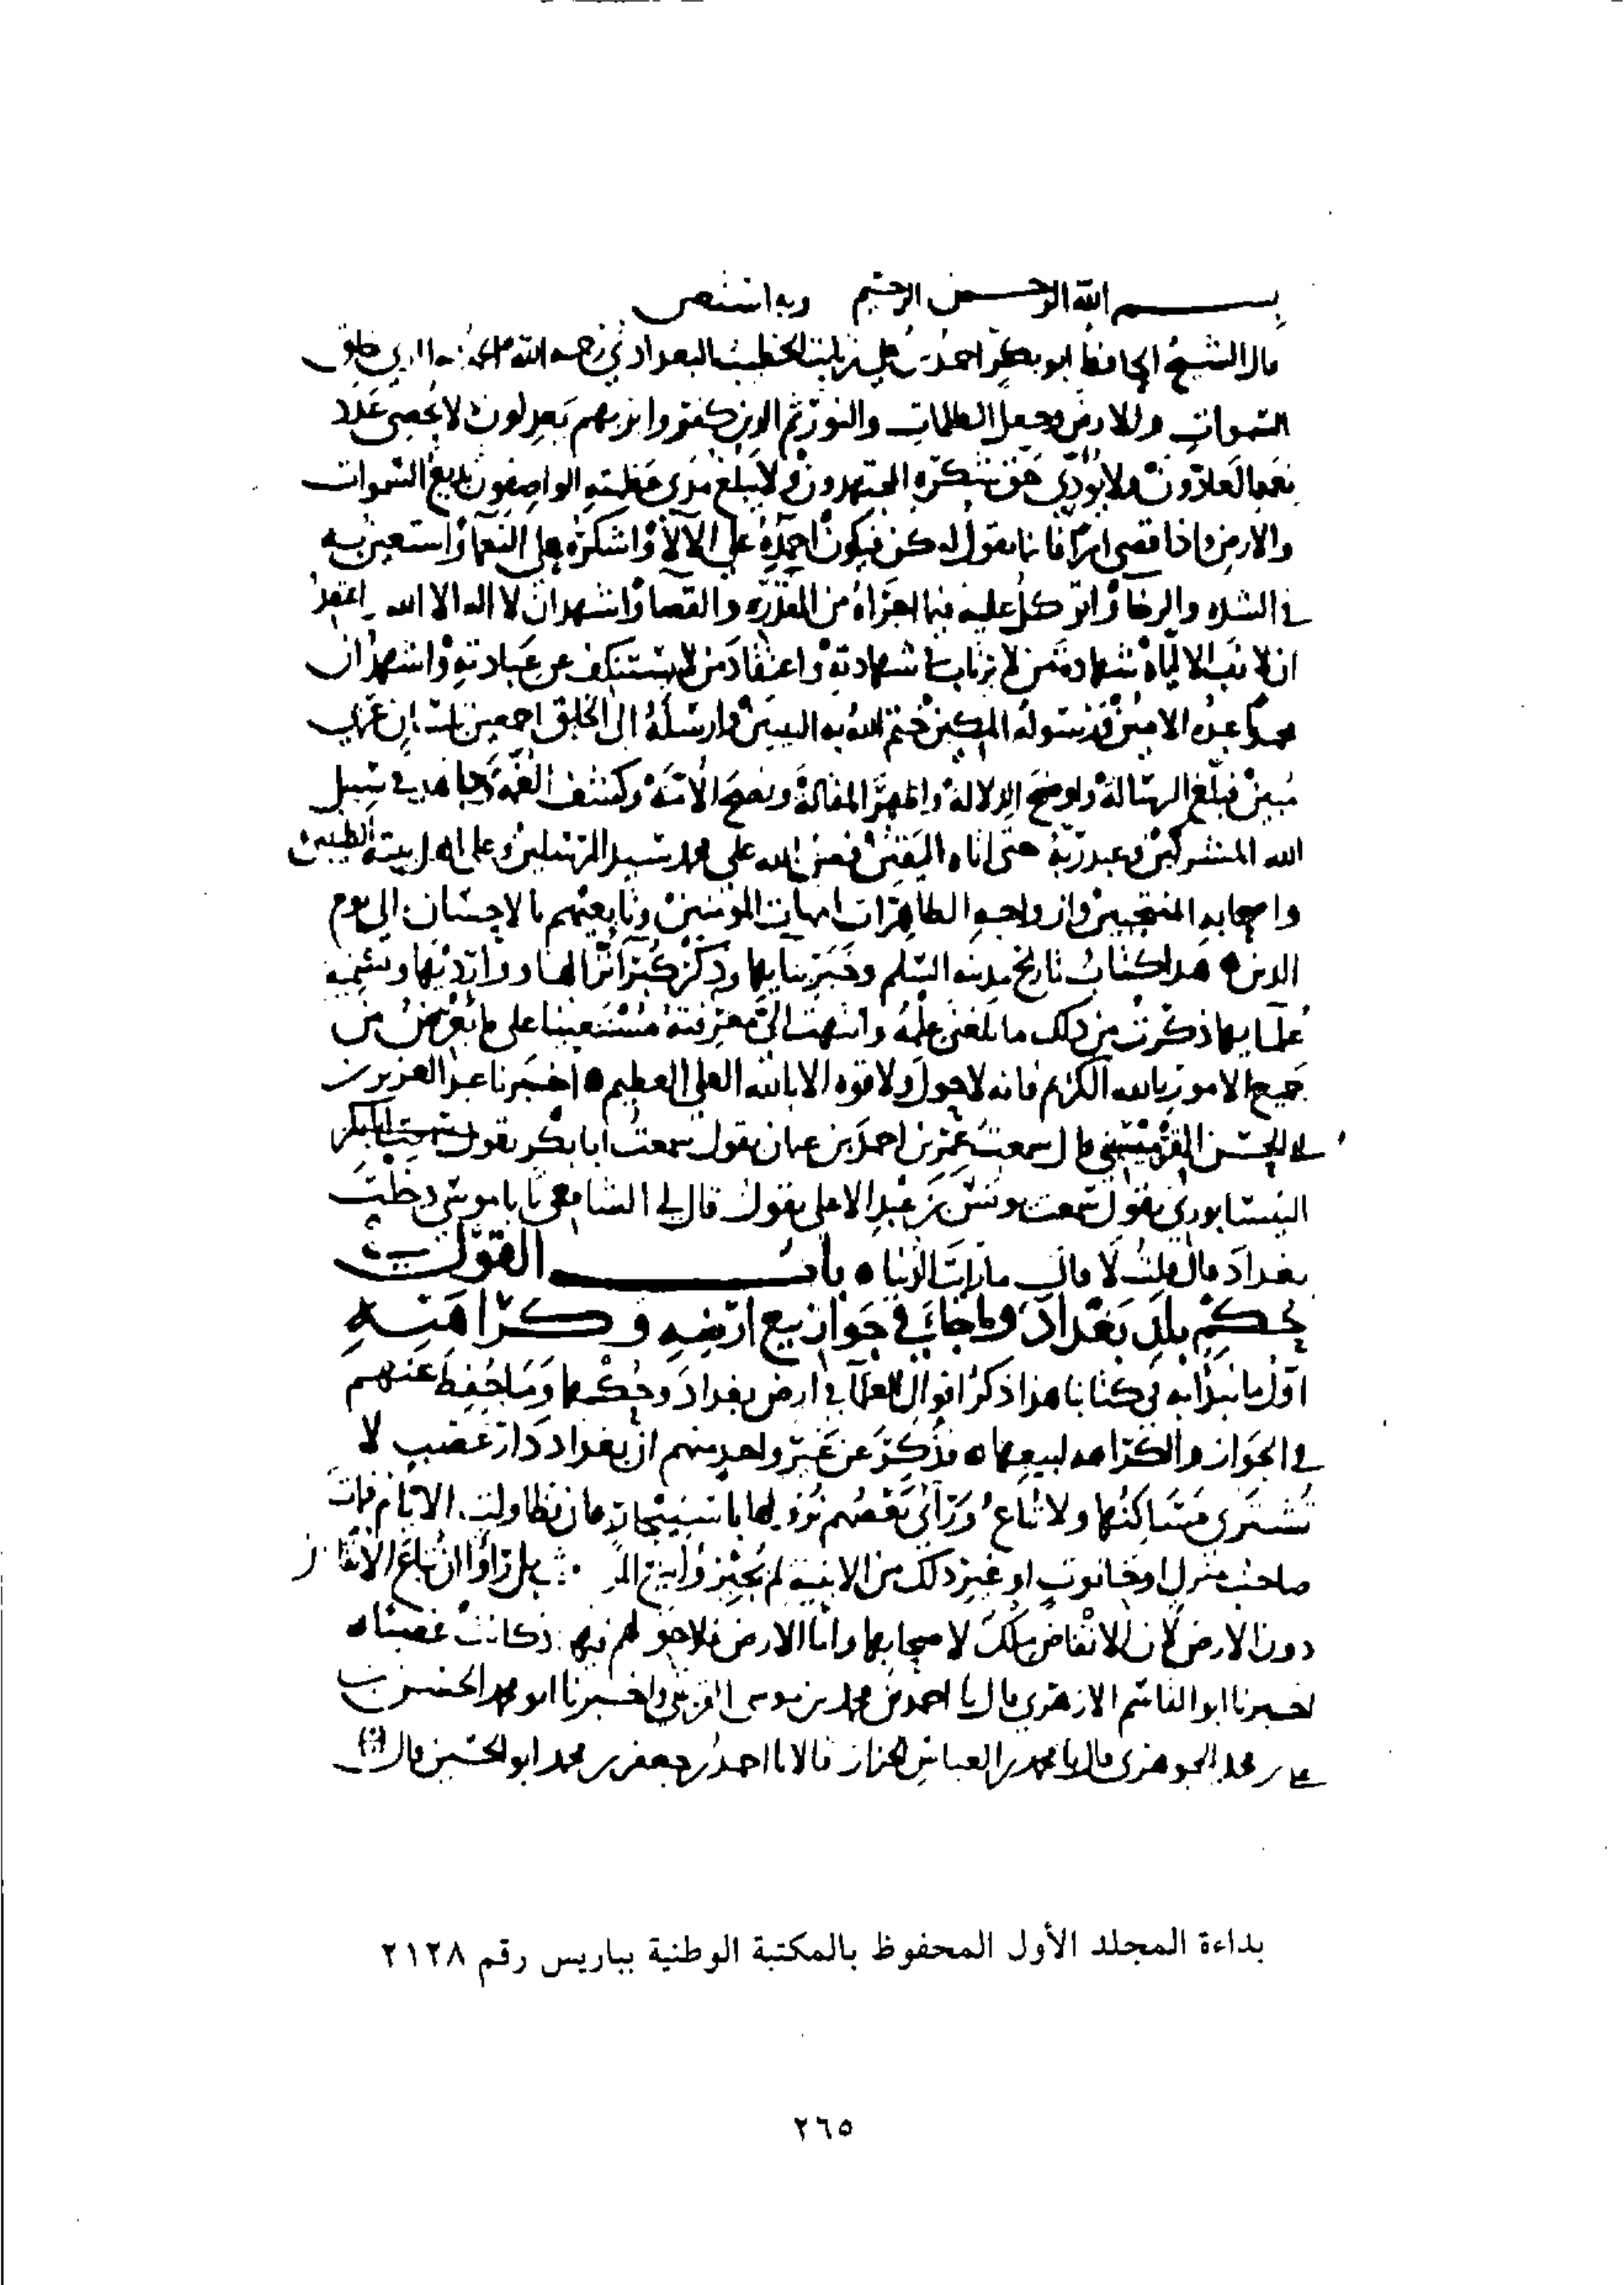 بسم الله الرحمن الرحيم وبه استعين
قال الشيخ الحافظ ابو بكر احمد بن علي بن ثابت الخطيب البغدادي رحمه الله الحمد لله الذي خلق
السموات والارض وجعل الظلمات والنور ثم الذين كفروا بربهم يعدلون لا يحصي عدد
نعمه العادون ولا يؤدي حق شكره المجتهدون ولا يبلغ مدى عظمته الواصفون بديع السموات
والارض واذا قضى امرا فانما يقول له كن فيكون احمده على الالاء واشكره على النعماء واستعين به
في الشدة والرخاء واتوكل عليه فيما اجراه من القدر والقضاء واشهد ان لا اله الا الله واعتقد
ان لا رب الا اياه شهادة من لا يرتاب في شهادته واعتقاد من لا يستنكف عن عبادته واشهد ان
محمدا عبده الامين ورسوله المكين ختم الله به النبيين وارسله الى الخلق اجمعين بلسان عربي
مبين فبلغ الرسالة واوضح الدلالة واظهر المقالة ونصح الامة وكشف الغمة وجاهد في سبيل
الله المشركين وعبد ربه حتى اتاه اليقين فصلى الله على محمد سيد المرسلين وعلى اهل بيته الطيبين
واصحابه المنتجبين وازواجه الطاهرات امهات المؤمنين وتابعيهم بالاحسان الى يوم
الدين هذا كتاب تاريخ مدينة السلم وخبر بنايها وذكر كبراء نزالها وواردها وتسمية
علمايها ذكرت من ذلك ما بلغني علمه وانتهت الي معرفته مستعينا على ما يعرض من
جميع الامور بالله الكريم فانه لا حول ولا قوة الا بالله العلي العظيم اخبرنا عبد العزيز بن
علي الحسن القرميسيني قال سمعت عمر بن احمد بن عثمان يقول سمعت ابا بكر يقول سمعت ابا بكر
النيسابوري يقول سمعت يونس بن عبد الاعلى يقول قال لي الشافعي يا با موسى دخلت
بغداد قال قلت لا قال ما رايت الدنيا باب القول في
حكم بلد بغداد وما جاء في جواز بيع ارضه وكراهته
اول ما نبدا به في كتابنا هذا ذكر اقوال العلماء في ارض بغداد وحكمها وما حفظ عنهم
في الجواز والكراهة لبيعها فذكر عن غير واحد منهم ان بغداد دار غصب لا
تشترى مساكنها ولا تباع وراى بعضهم نزولها باستيجار فان تطاولت الايام فمات
صاحب منزل او حانوت او غير ذلك من الابنية لم يجيزوا بيع بل راوا ان تباع الانقاض
دون الارض لان الانقاض ملك لاصحابها واما الارض فلا حق لهم فيها اذ كانت غصبا
اخبرنا ابو القاسم الازهري قال انا احمد بن محمد بن موسى القرشي واخبرنا ابو محمد الحسن بن
علي بن محمد الجوهري قال انا محمد بن العباس الخزاز قالا انا احمد بن جعفر بن محمد ابو الحسين قال
بداءة المجلد الأول المحفوظ بالمكتبة الوطنية بباريس رقم ٢١٢٨
٢٦٥